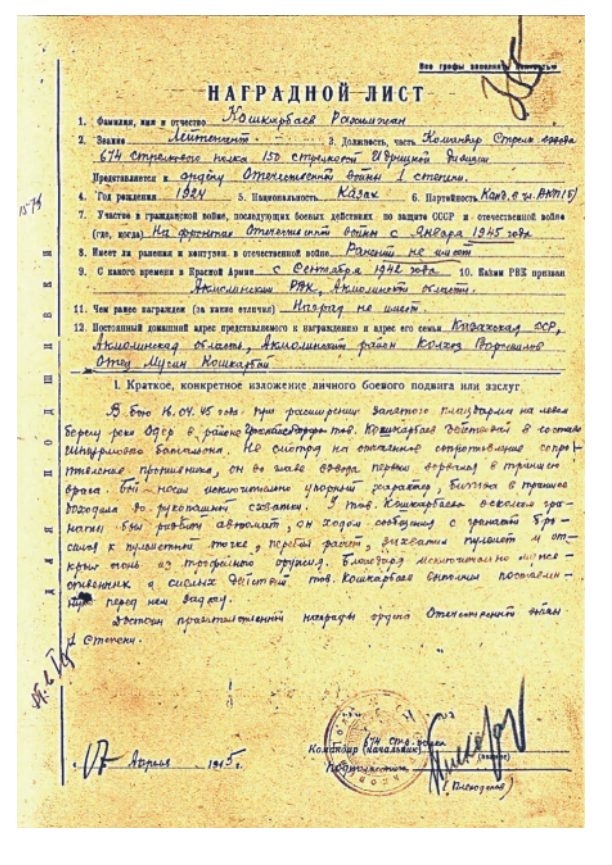 Все графы заполнять полностью
НАГРАДНОЙ ЛИСТ
1. Фамилия, имя и отчество Кошкарбаев Рахимжан
2. Звание Лейтенант 3. Должность, часть Командир Стрелк. взвода
674 стрелкового полка 150 стрелковой Идрицкой дивизии
Представляется к ордену Отечественной войны I степени.
4. Год рождения 1924 5. Национальность Казах 6. Партийность Канд. в чл. ВКП(б)
7. Участие в гражданской войне, последующих боевых действиях по защите СССР и отечественной войне
(где, когда) На фронтах Отечественной войны с Января 1945 года
8. Имеет ли ранения и контузии в отечественной войне Ранений не имеет
9. С какого времени в Красной Армии с Сентября 1942 года 10. Каким РВК призван
Акмолинским РВК, Акмолинской области.
11. Чем ранее награжден (за какие отличия) Наград не имеет.
12. Постоянный домашний адрес представляемого к награждению и адрес его семьи Казахская ССР,
Акмолинская область, Акмолинский район Колхоз Ворошилов
Отец Мусин Кошкарбай
I. Краткое, конкретное изложение личного боевого подвига или заслуг
В бою 16.04.45 года при расширении занятого плацдарма на левом
берегу реки Одер в районе тов. Кошкарбаев действовал в составе
штурмового батальона. Не смотря на отчаянное сопротивление сопро-
тивление противника, он во главе взвода первым ворвался в траншею
врага. Бой носил исключительно упорный характер, битва в траншее
доходила до рукопашной схватки. У тов. Кошкарбаева осколком гра-
наты был разбит автомат, он ходом сообщения с гранатой бро-
сился к пулеметной точке, перебил расчет, захватил пулемет и от-
крыл огонь из трофейного оружия. Благодаря исключительно мужес-
твенных и смелых действий тов. Кошкарбаев выполнил поставлен-
ную перед ним задачу.
Достоин правительственной награды ордена Отечественной войны
I Степени.
Командир (начальник) 674 стр. полка
Подполковник
(Плеходанов)
17 Апреля 1945 г.